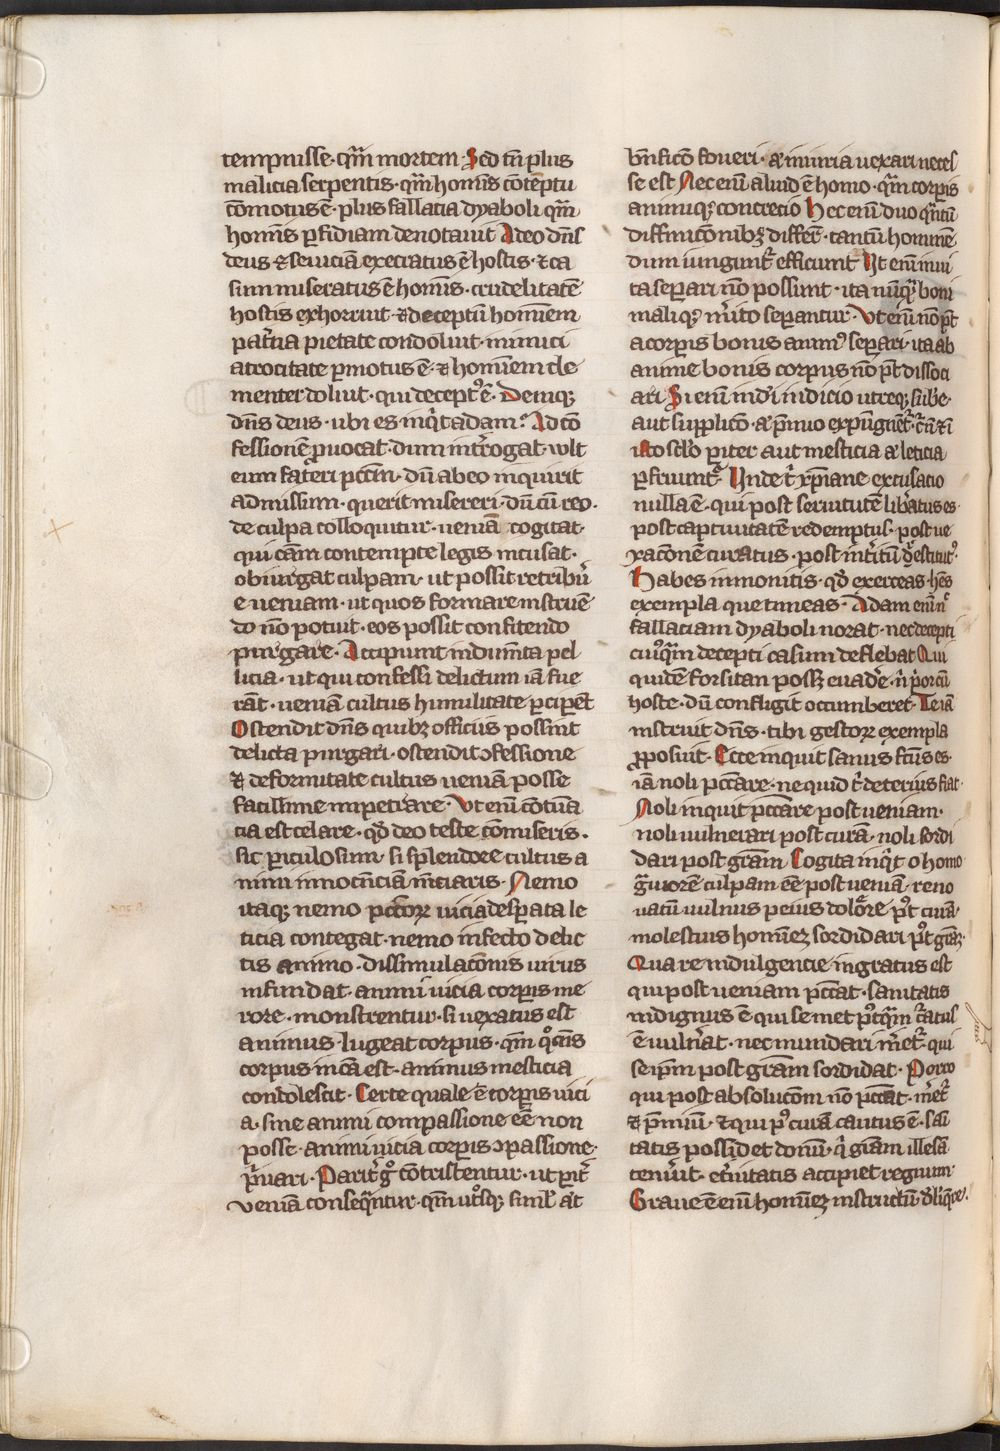 tempnisse· qm̄ mortem· Sed tn̄ plus
malicia serpentis· qm̄ hoīnis cōteptu
cōmotus ē· plus fallacia dyaboli qm̄
homīs ꝑfidiam denotauit Adeo dn̄s
deus ⁊ seuiciā execratus ē hostis· ⁊ ca
sum miseratus ē homīs· crudelitatē
hostis exhorruit· ⁊ deceptū hominem
pat̄na pietate condoluit· inimici
atrocitate ꝑmotus ē· ⁊ hominem cle
menter doluit· qui decept᷒ ē· Deniqꝫ
dn̄s deus· ubi es inqͥt adam· Ad cō
fessionē ꝓuocat· dum int̄rogat· wlt
eum fateri pctm̄· dū ab eo inquirit
admissum· querit misereri· dū cū reo·
de culpa colloquitur· ueniā cogitat·
qui eam contempte legis incusat·
obiurgat culpam· ut possit retribue
e ueniam· ut quos formare instruē
do nō potuit· eos possit confitendo
purgare· Accipiunt indumta pel
licia· ut qui confessi delictum iā fue
rāt· ueniā cultus humilitate ꝑciꝑent
Ostendit dn̄s quibꝫ officiis possint
delicta purgari· ostendit ↄfessione
⁊ deformitate cultus ueniā posse
facillime impetrare· Vt eni cōtuma
cia est celare· qd̄ deo teste cōmiseris·
sic ꝑiculosum· si splendore cultus a
nimi innocenciā mēciaris· Nemo
itaqꝫ nemo pctōꝝ uicia desꝑata le
ticia contegat· nemo infecto delic
tis animo· dissimulacōnis uirus
infundat· animi uicia corꝑis me
rore· monstrentur· si uexatus est
animus· lugeat corpus· qm̄ qͦciēs
corpus in ca est· animus mesticia
condolescit· Certe quale ē corꝑis uici
a· sine animi compassione eē non
posse· animi uicia corꝑis ↄpassione·
pͥuari· Parit̄ gͦ cōtristentur· ut parit̄
ueniā conseqͣntur· qm̄ ut̄qꝫ simul aut
bn̄ficō foueri· aut iniuria uexari neces
se est Nec enī aliud ē homo· qm̄ corꝑis
animiqꝫ concretio Hec enī duo qͣntū
diffinicōnibꝫ differt· tantū hominē
dum iunguntᷣ efficiunt Vt enī inui
ta seꝑari nō possunt· ita nūqͣm boni
maliqꝫ m̄ito seꝑantur· Vt enī nō pt̄
a corꝑis bonis anim᷒ seꝑari· ita ab
anime bonis corpus nō pt̄ dissoci
ari· Si enī indei iudicio utreqꝫ sube·
aut supplicō· aut p̄mio expungnētᷣ
 pariter aut mesticia aut leticia
ꝑfruuntᷣ Vnde tͥ xp̄iane excusatio
nulla ē· qui post seruitutē lib̄atus es·
post captiuitatē redemptus· post ue
xacōnē curatus· post int̄itū
Habes in monitis· qd̄ exerceas· hēs
exempla que timeas· Adam enī nͨ
fallaciam dyaboli norat· nec decepti
cuiqͣm decepti casum deflebat Qui
quidē forsitan possꝫ euade· n̄
hoste· dū confligit occumberet· Te iā
instruit dn̄s· tibi gestoꝝ exempla
ꝓposuit· Ecce inquit sanus fc̄us es·
iā noli pctāre· ne quid tͥ deterius fiat·
Noli inquit pctāre post ueniam·
noli uulnerari post curā· noli sordi
dari post grām Cogita inqͥt o homo
gͣuiorē culpam eē post ueniā· reno
uatū uulnus peius dolore pͦt curā·
molestius hominez sordidari pͦt grāꝫ·
Quare indulgencie ingratus est
qui post ueniam pctāt· sanitatis
indignus ē qui semet postqͣm cͣatus
ē uulnerat· nec mundari m̄etᷣ· qui
se ip̄m post grām sordidat· Porro
qui post absolucōm nō pctāt· m̄etᷣ
⁊ p̄miū· ⁊ qui pͦ curā cautus ē· sani
tatis possidet donū· qͥ grām illesā
tenu̅it· et̄nitatis accipiet regnum·
Graue ē enī hominez instructū deliqͥre·